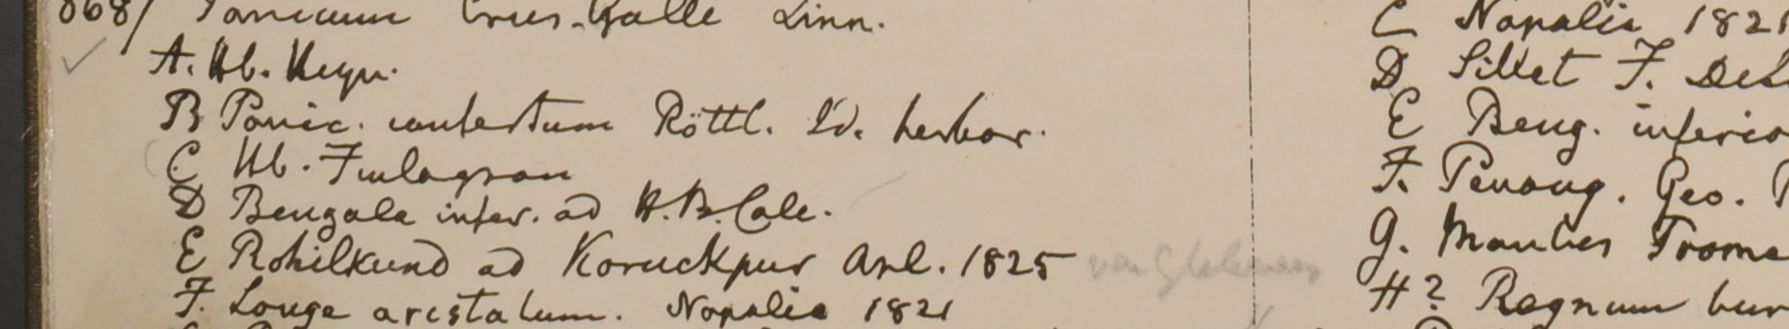 868/ Panicum Crus-Galli Linn.
A. Hb. Heyn.
B Panic. confertum Röttl. Id. herbar.
C Hb. Finlayson
D Bengala infer. ad H.B. Calc.
E Rohilkund ad Koruckpur Apl. 1825
F. Longe aristatum. Napalia 1821
C Napalia 1821
D Sillet F. De
E Beng. inferio
F. Penang. Geo.
G. Montes Prome
H? Regnum bur